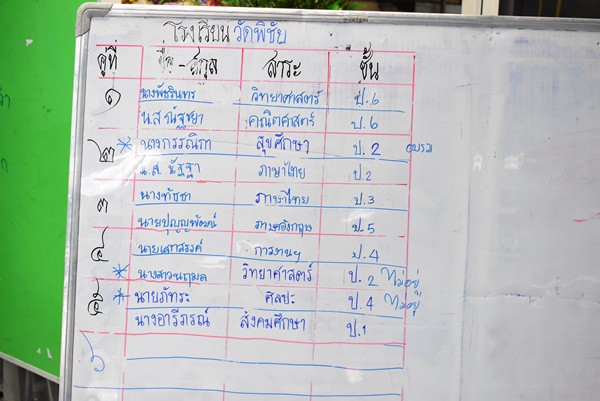 โรงเรียนวัดพิชัย
คู่ที่ ชื่อ-สกุล สาระ ชั้น
๑ นางพัชรินทร วิทยาศาสตร์ ป.6
น.ส ณัฐชยา คณิตศาสตร์ ป.6
๒ * นางกรรณิกา สุขศึกษา ป.2 อบรม
น.ส. นัฐฐา ภาษาไทย ป.2
๓ นางทัชชา ภาษาไทย ป.3
นายปุญญพัฒน์ ภาษาอังกฤษ ป.5
๔ นายเสกสรรค์ การงานฯ ป.4
* นางสาวนฤมล วิทยาศาสตร์ ป.2 ไม่อยู่
๕ * นายภัทระ ศิลปะ ป.4 ไม่อยู่
นางอารีภรณ์ สังคมศึกษา ป.1
๖